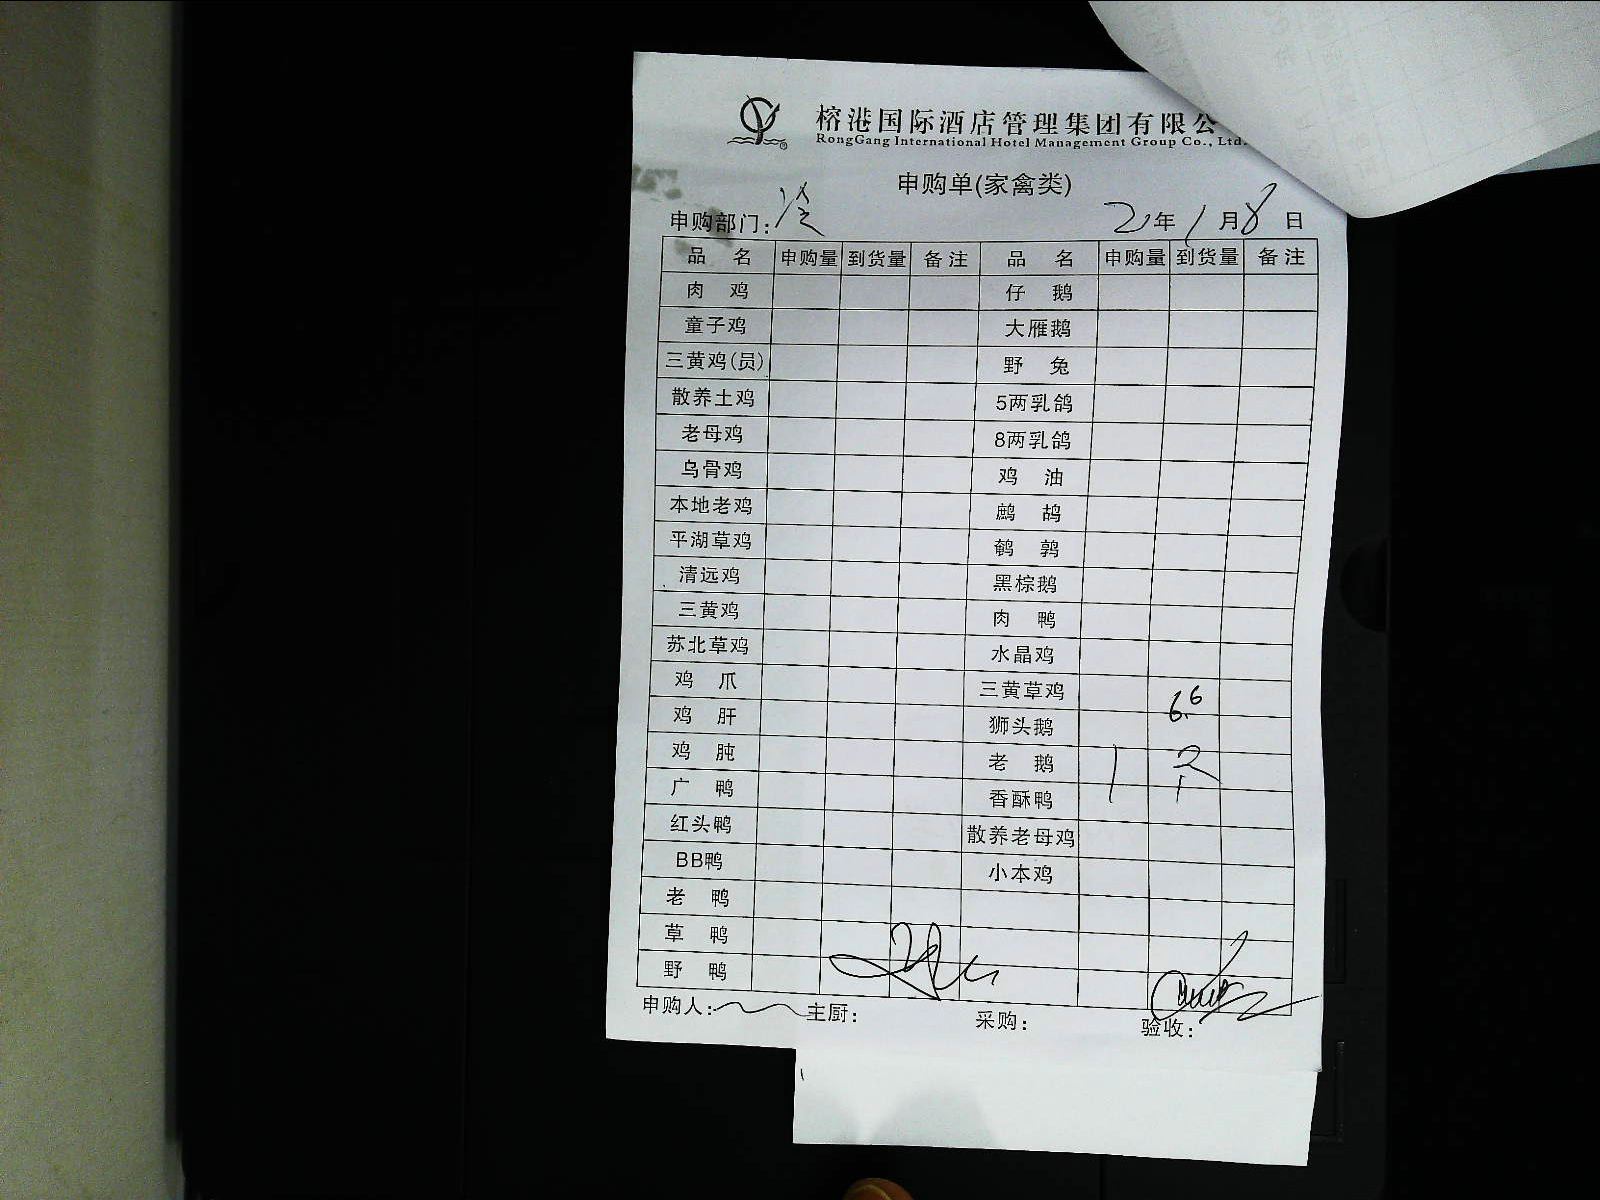 榕港国际酒店管理集团有限公
RongGang International Hotel Management Group Co., Ltd.
申购单(家禽类)
申购部门: 冷 21年1月8日
品 名 申购量 到货量 备注 品 名 申购量 到货量 备注
肉 鸡 仔 鹅
童子鸡 大雁鹅
三黄鸡(员) 野 兔
散养土鸡 5两乳鸽
老母鸡 8两乳鸽
乌骨鸡 鸡 油
本地老鸡 鹧 鸪
平湖草鸡 鹌 鹑
清远鸡 黑棕鹅
三黄鸡 肉 鸭
苏北草鸡 水晶鸡
鸡 爪 三黄草鸡 6.6
鸡 肝 狮头鹅
鸡 肫 老 鹅 1
广 鸭 香酥鸭
红头鸭 散养老母鸡
BB鸭 小本鸡
老 鸭
草 鸭
野 鸭
申购人: 主厨: 采购: 验收: